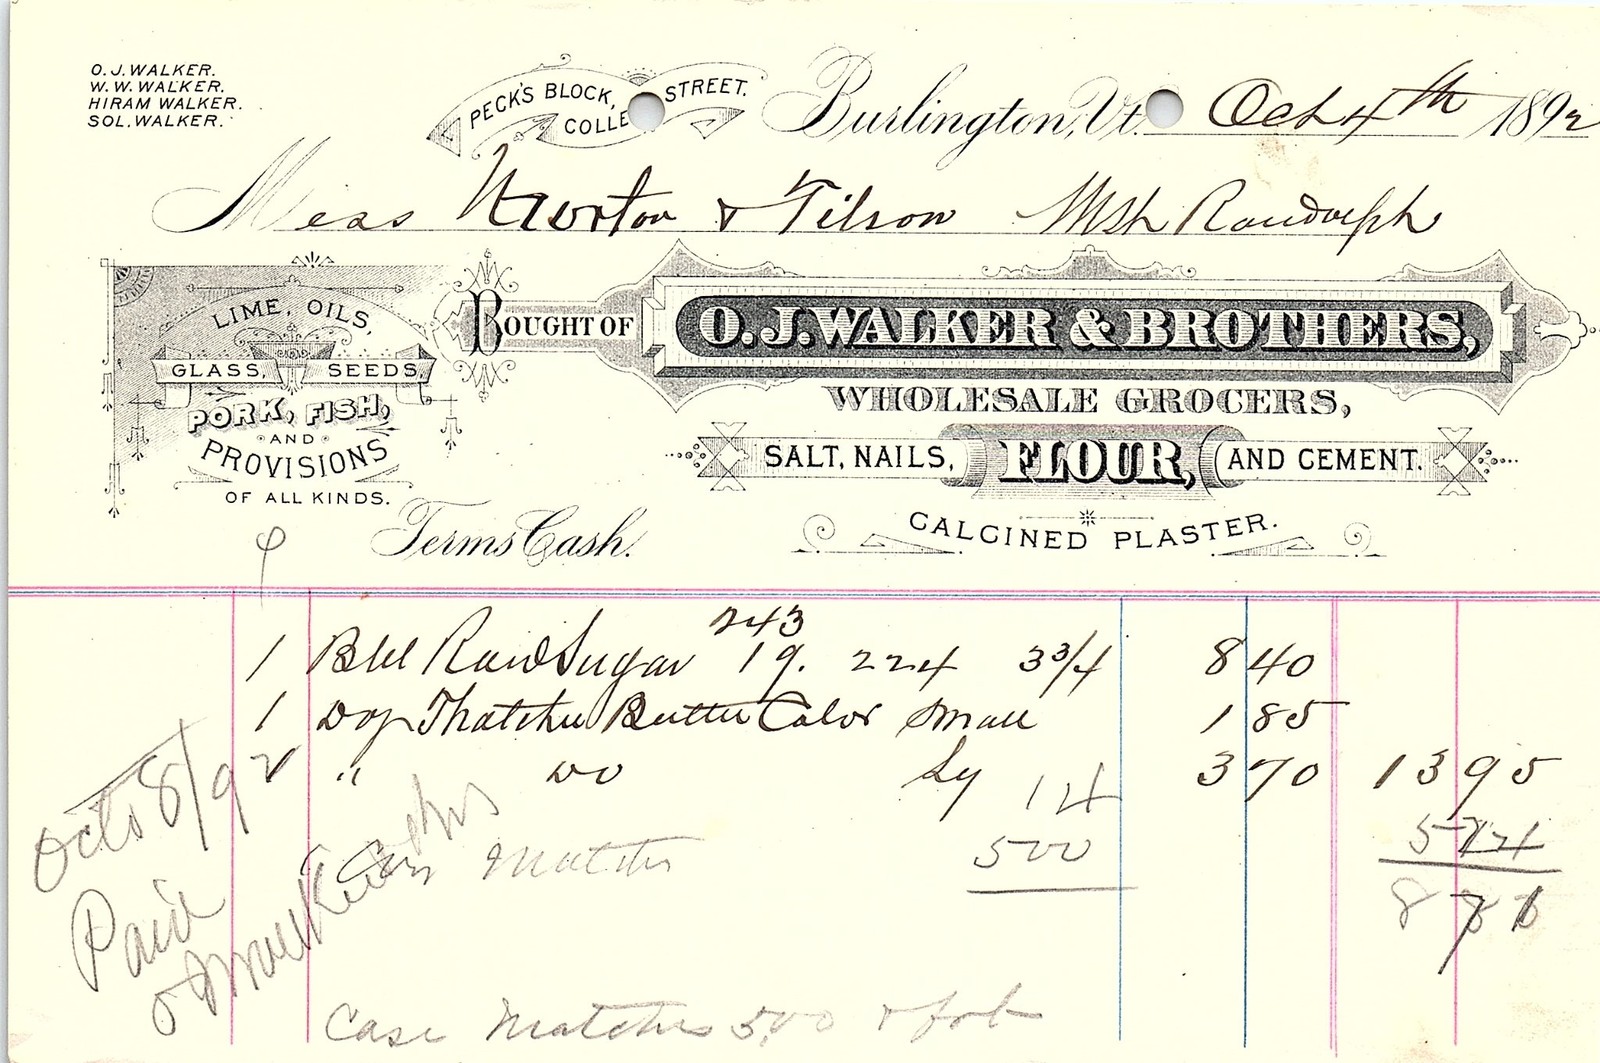 O. J. WALKER.
W. W. WALKER.
HIRAM WALKER.
SOL. WALKER.
PECK'S BLOCK, COLLE STREET.
Burlington, Vt. Oct 4th 1892
Mess Morton & Tilson Wth Randolph
LIME, OILS,
GLASS, SEEDS,
PORK, FISH,
AND
PROVISIONS
OF ALL KINDS.
BOUGHT OF O. J. WALKER & BROTHERS,
WHOLESALE GROCERS,
SALT, NAILS, FLOUR, AND CEMENT.
CALCINED PLASTER.
Terms Cash.
243
1 Bbl Raw Sugar 19. 224 3 3/4 8 40
1 Doz Thatcher Butter Color Small 1 85
" Do Lg 3 70 13 95
14
Matches 500
5 14
8 81
Octo 8/92
Paid
Case Matches 5,00 & frt